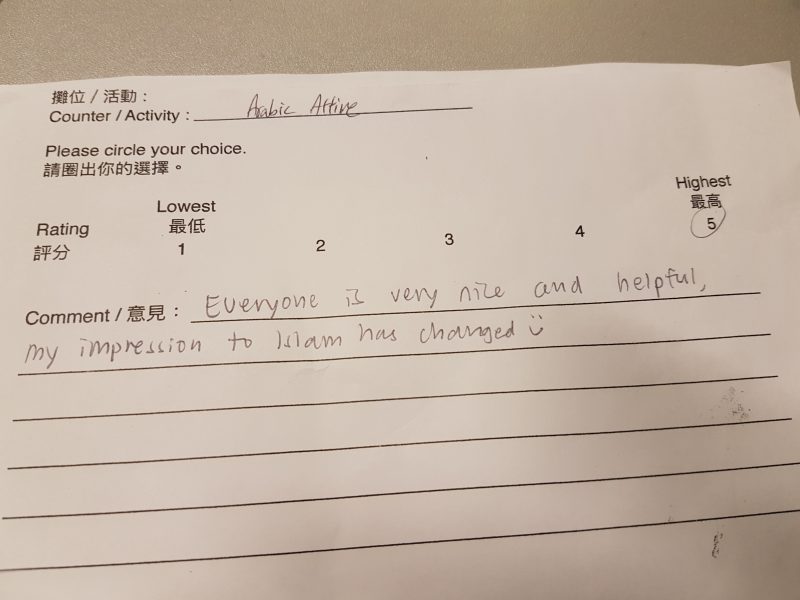 攤位 / 活動：
Counter / Activity : Arabic Attire
Please circle your choice.
請圈出你的選擇。
Highest
最高
Lowest
最低
Rating
評分
1 2 3 4 5
Comment / 意見： Everyone is very nice and helpful,
my impression to Islam has changed